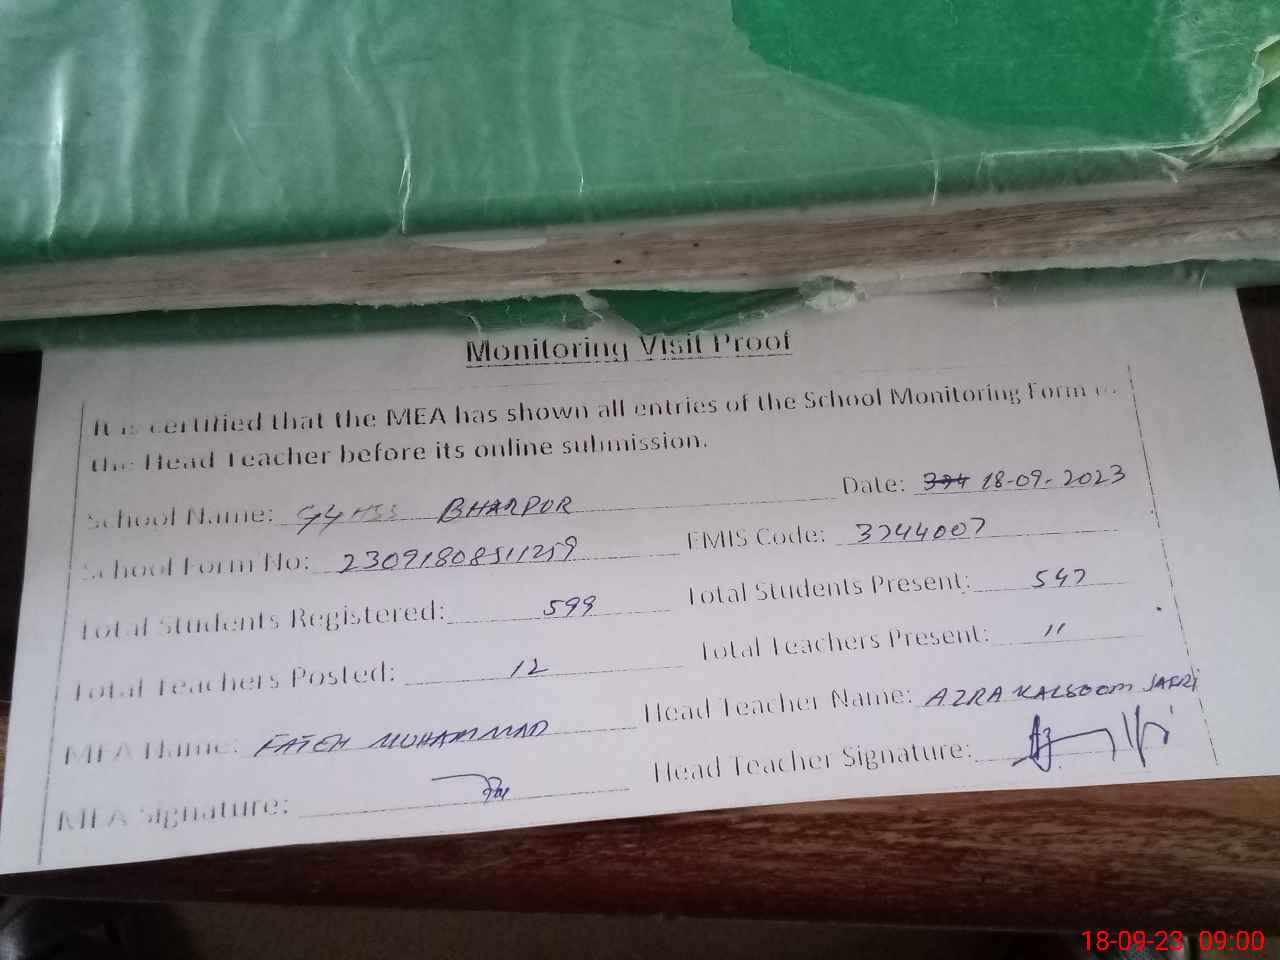 Monitoring Visit Proof
It is certified that the MEA has shown all entries of the School Monitoring Form to
the Head Teacher before its online submission.
School Name: BHARPUR Date: 18-09-2023
School Form No: 23091808511259 EMIS Code: 3744007
Total Students Registered: 599 Total Students Present: 547
Total Teachers Posted: 12 Total Teachers Present: 11
MEA Name: FATEH MUHAMMAD Head Teacher Name: AZRA KALSOOM JAFRI
MEA Signature: Head Teacher Signature:
18-09-23 09:00